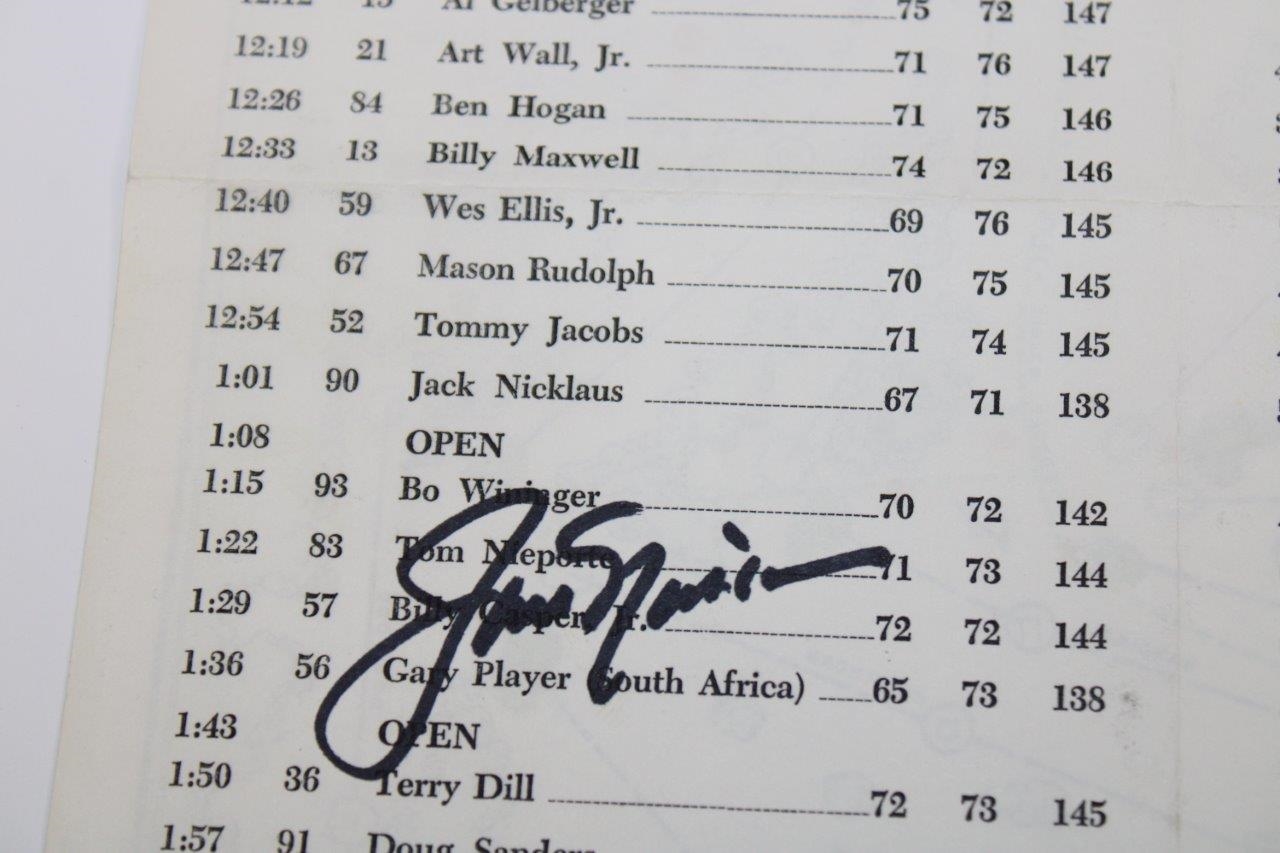 12:12 15 Al Geiberger 75 72 147
12:19 21 Art Wall, Jr. 71 76 147
12:26 84 Ben Hogan 71 75 146
12:33 13 Billy Maxwell 74 72 146
12:40 59 Wes Ellis, Jr. 69 76 145
12:47 67 Mason Rudolph 70 75 145
12:54 52 Tommy Jacobs 71 74 145
1:01 90 Jack Nicklaus 67 71 138
1:08 OPEN
1:15 93 Bo Wininger 70 72 142
1:22 83 Tom Nieporte 71 73 144
1:29 57 Billy Casper, Jr. 72 72 144
1:36 56 Gary Player (South Africa) 65 73 138
1:43 OPEN
1:50 36 Terry Dill 72 73 145
1:57 91 Doug Sanders